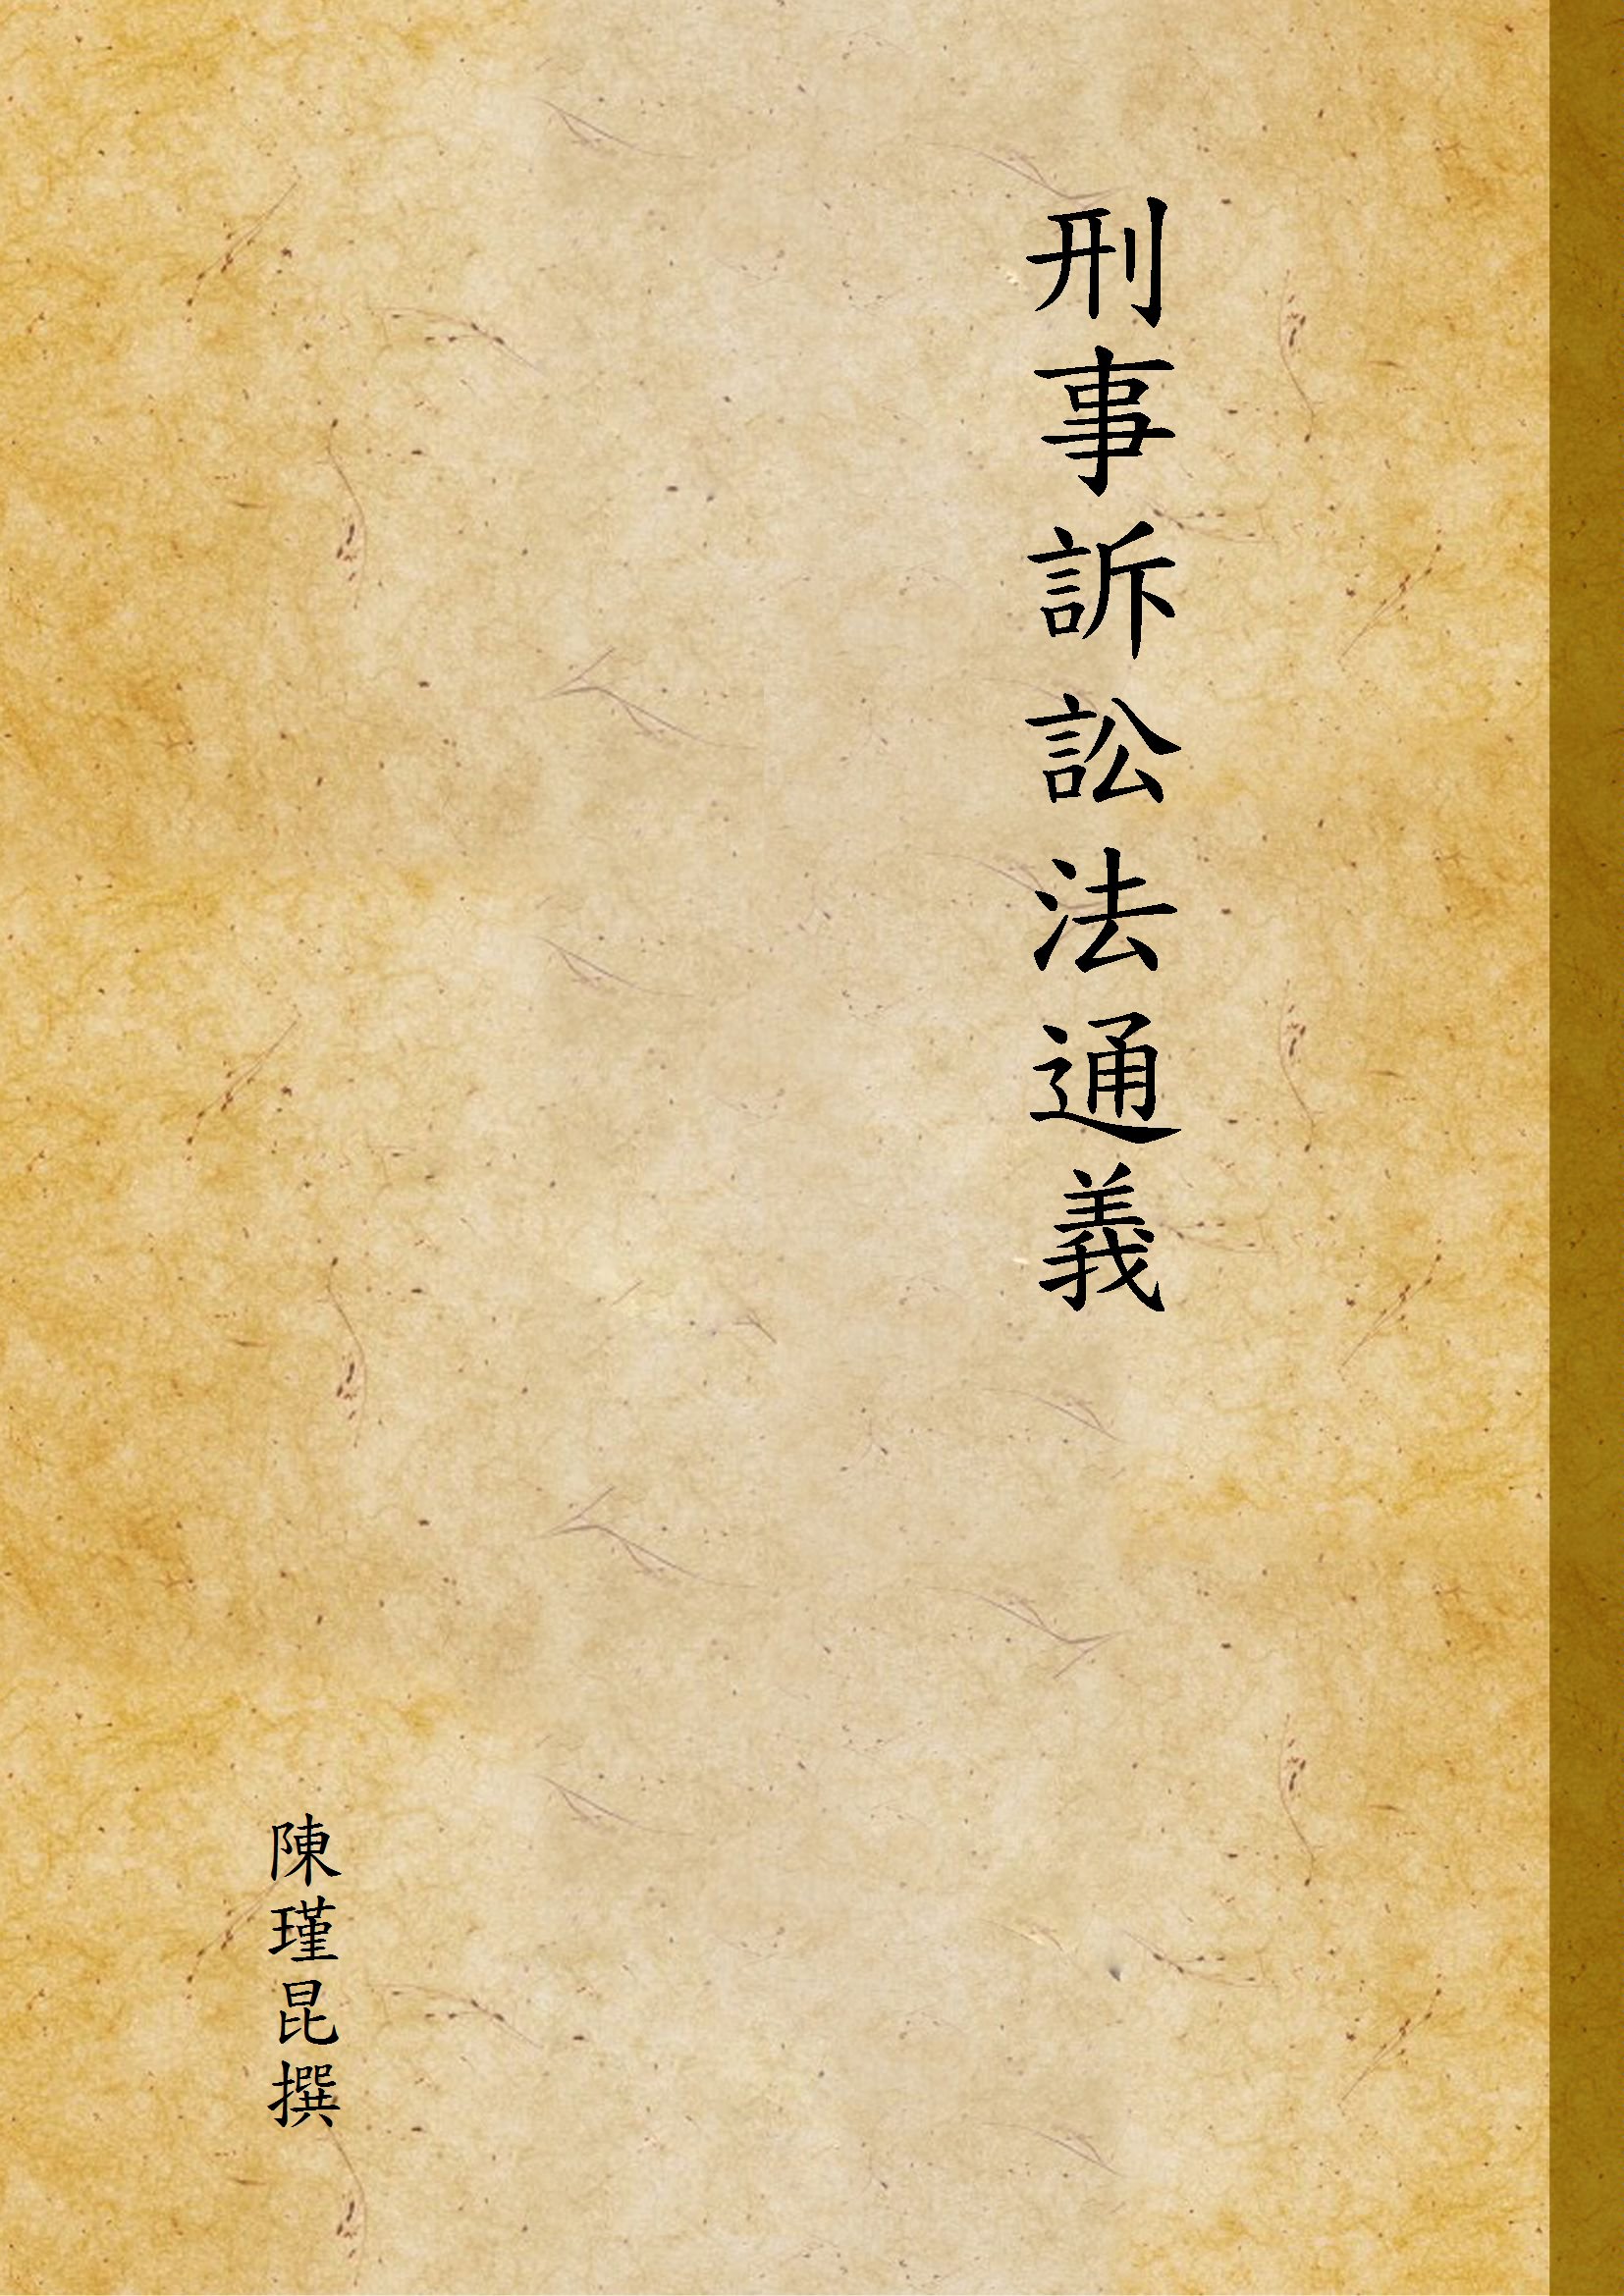 刑事訴訟法通義
陳瑾昆撰